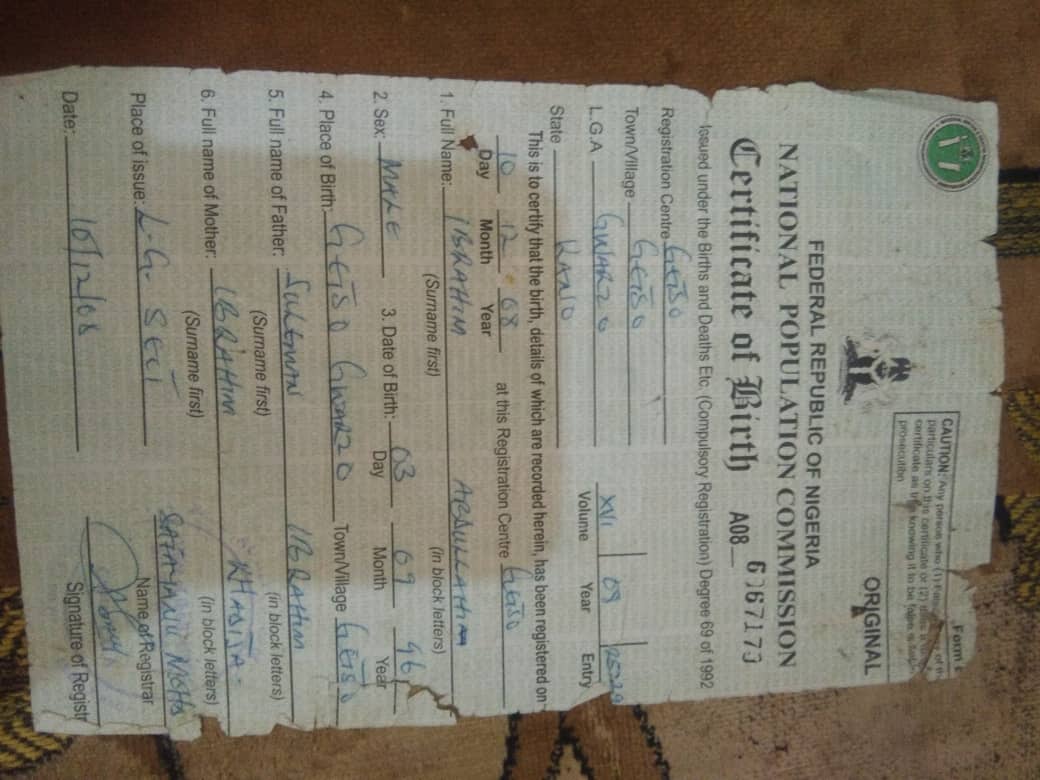 Form
CAUTION: Any person who (1)
particulars on this certificate or (2)
certificate as knowing it to be false
prosecution
ORIGINAL
FEDERAL REPUBLIC OF NIGERIA
NATIONAL POPULATION COMMISSION
Certificate of Birth A08
Issued under the Births and Deaths Etc. (Compulsory Registration) Degree 69 of 1992
Registration Centre GETSO
Town/Village GETSO
L.G.A GWARZO XVI 08
Volume Year Entry
State KANO
This is to certify that the birth, details of which are recorded herein, has been registered on
10 12 08 at this Registration Centre GETSO
Day Month Year
1. Full Name: IBRAHIM ABDULLAHI
(Surname first) (In block letters)
2. Sex: MALE 3. Date of Birth: 03 09 96
Day Month Year
4. Place of Birth: GETSO GWARZO Town/Village GETSO
5. Full name of Father: SULEMAN IBRAHIM
(Surname first) (in block letters)
6. Full name of Mother: IBRAHIM KHADIJA
(Surname first) (in block letters)
Place of issue: L.G. SECT
Name of Registrar
Date: 10/12/08
Signature of Registr